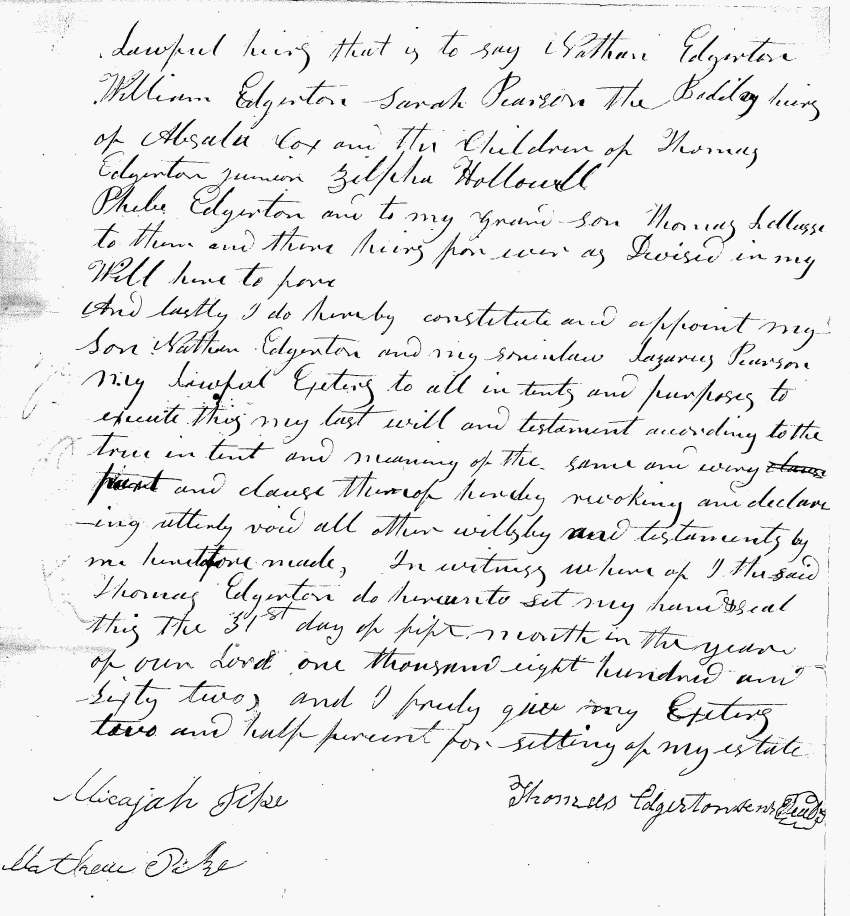 Lawful heirs that is to say Nathan Edgerton
William Edgerton Sarah Pearson the Bodily heirs
of Absala Cox and the Children of Thomas
Edgerton junior Zilpha Hollowell
Phebe Edgerton and to my grand-son Thomas
to them and there heirs for ever as Devised in my
Will here to fore
And lastly I do hereby constitute and appoint my
Son Nathan Edgerton and my soninlaw Lazarus Pearson
my Lawful Exeters to all in tents and purposes to
execute this my last will and testament according to the
true in tent and meaning of the same and every clause
part and clause thereof hereby revoking and declare
ing utterly void all other wills by and testaments by
me heretofore made, In witness where of I the said
Thomas Edgerton do hereunto set my hand & seal
this the 31st day of fift month in the year
of our Lord one thousand eight hundred and
sixty two, and I freely give my Exeters
two and half percent for settling of my estate
Thomas Edgerton senr Seal
Micajah Pike
Mathew Pike